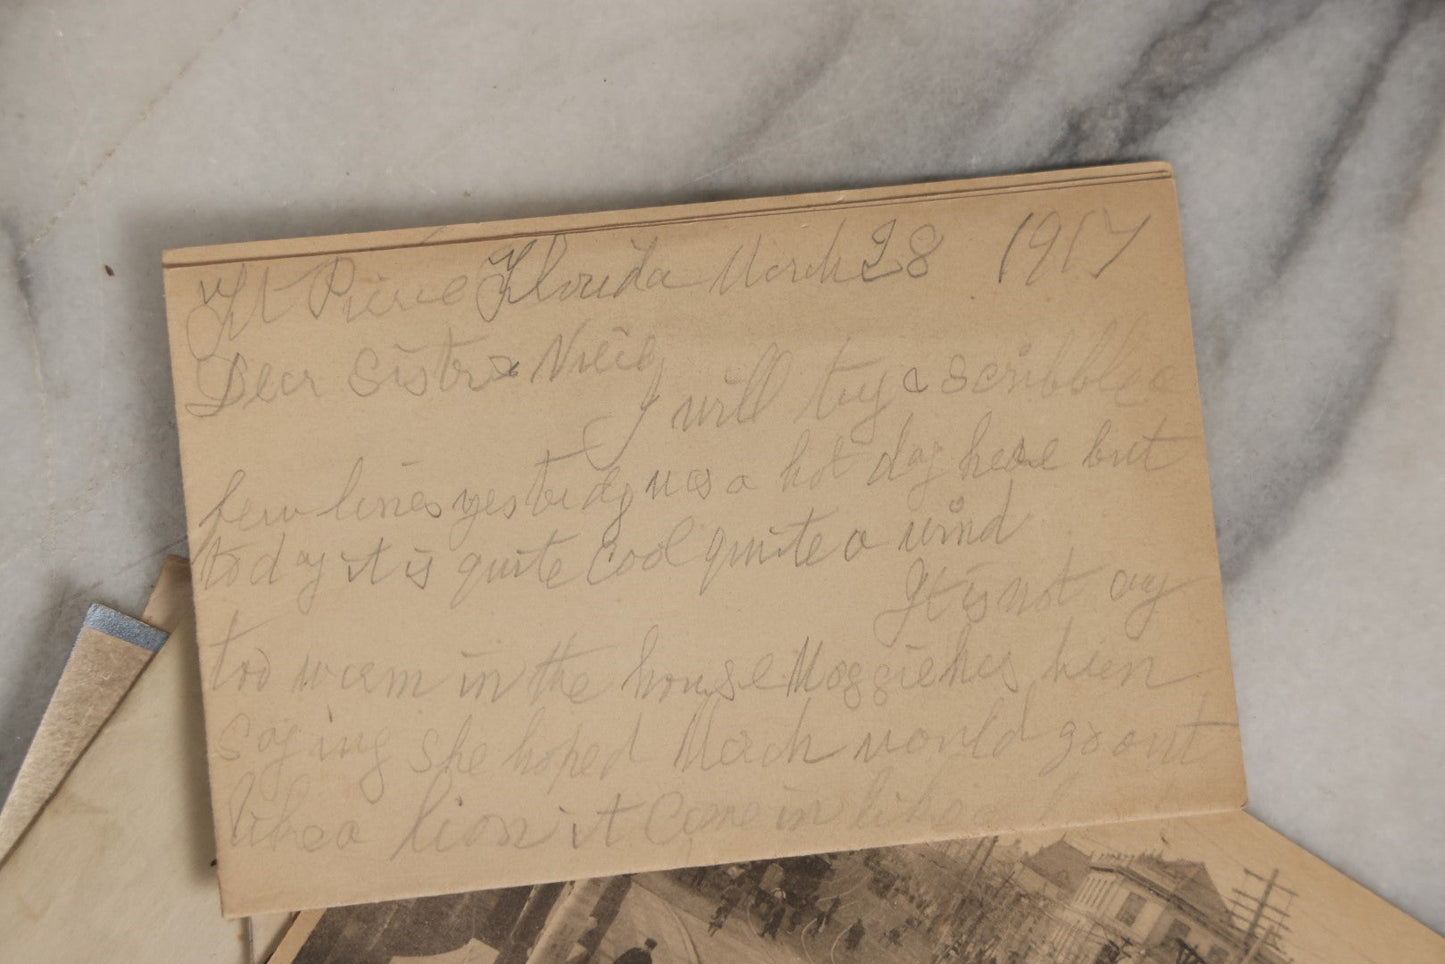 Ft Pierce Florida March 28 1917
Dear Sister & Niece
I will try a scribble a
few lines yesterdy was a hot day here but
today it is quite cool quite a wind
It is not any
too warm in the house Maggie has been
saying she hoped March would go out
like a lion it came in like a